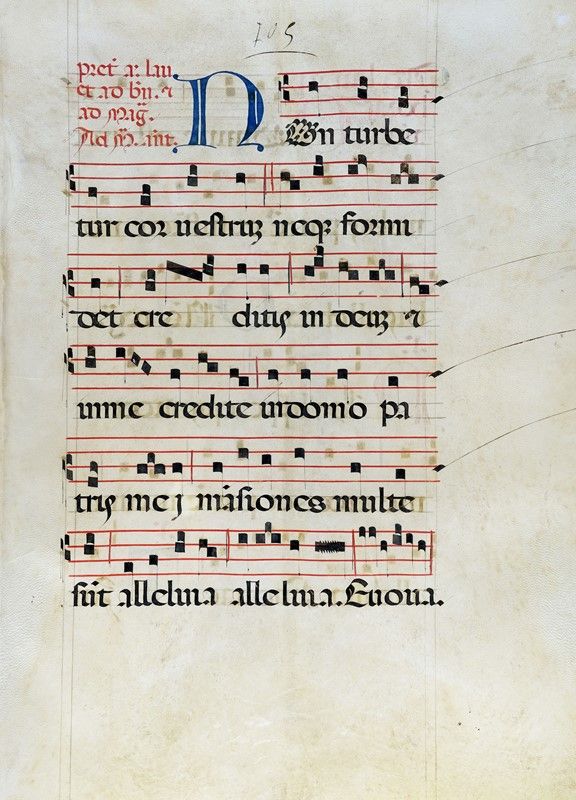 705
pret̄ a: lau
et ad bn̄. ⁊
ad mag̃.
Ad M̃. ant.
NOn turbe
tur cor uestruꝫ neqꝫ formi
det cre ditis in deuꝫ ⁊
inme credite indomo pa
tris mei mãsiones multe
sūt alleluia alleluia. Euoua.